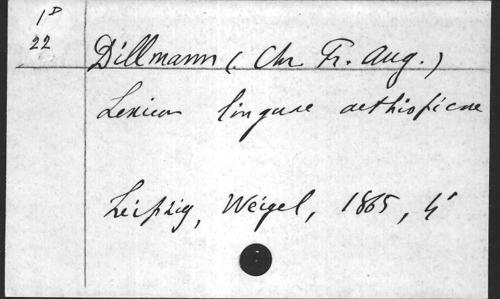 1D
22
Dillmann (Chr. Fr. Aug.)
Lexicon linguae aethiopicae
Leipzig, Weigel, 1865, 4°